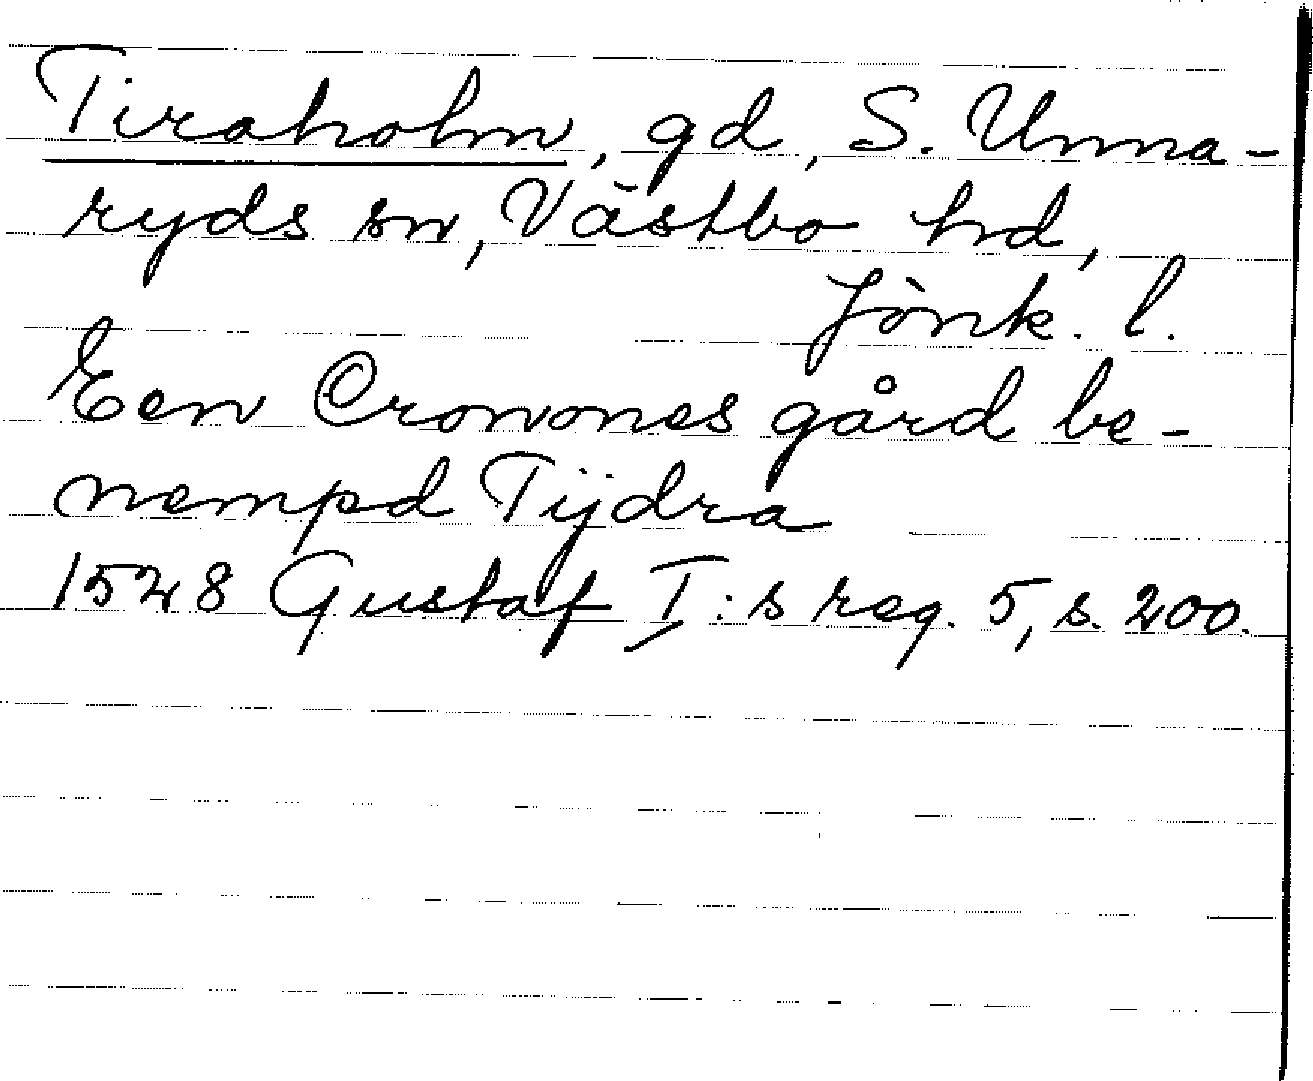 Tiraholm, gd, S. Unna-
ryds sn, Västbo hd,
Jönk. l.
Een Cronones gård be-
nempd Tijdra
1528 Gustaf I:s reg. 5, s. 200.